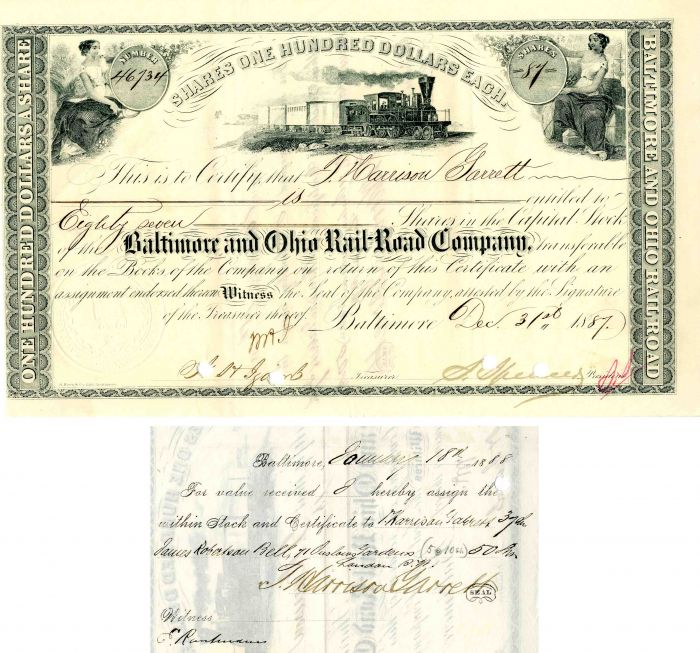 NUMBER
46734
SHARES ONE HUNDRED DOLLARS EACH.
SHARES
-87-
ONE HUNDRED DOLLARS A SHARE
BALTIMORE AND OHIO RAIL-ROAD
This is to Certify, that T. Harrison Garrett
is entitled to
Eighty seven Shares in the Capital Stock
of the Baltimore and Ohio Rail-Road Company, transferable
on the Books of the Company on return of this Certificate with an
assignment endorsed thereon Witness the Seal of the Company, attested by the Signature
of the Treasurer thereof. Baltimore Dec. 31st 1887
Treasurer
S. Spencer President
Baltimore, January 18th 1888
For value received I hereby assign the
within Stock and Certificate to T Harrison Garrett 37 Shs
James Robertson Bell, Gardens 50 Shs
London
T. Harrison Garrett
SEAL
Witness